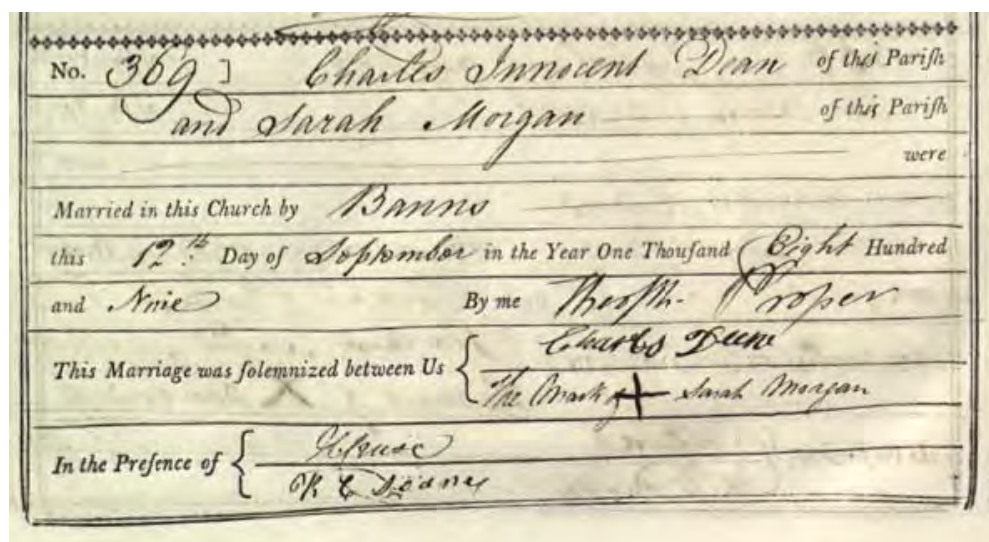 No. 369] Charles Innocent Dean of this Pariſh
and Sarah Morgan of this Pariſh
were
Married in this Church by Banns
this 12th Day of September in the Year One Thouſand Eight Hundred
and Nine By me Theoph. Proper
This Marriage was ſolemnized between Us { Charles Deen
The Mark of + Sarah Morgan
In the Preſence of {